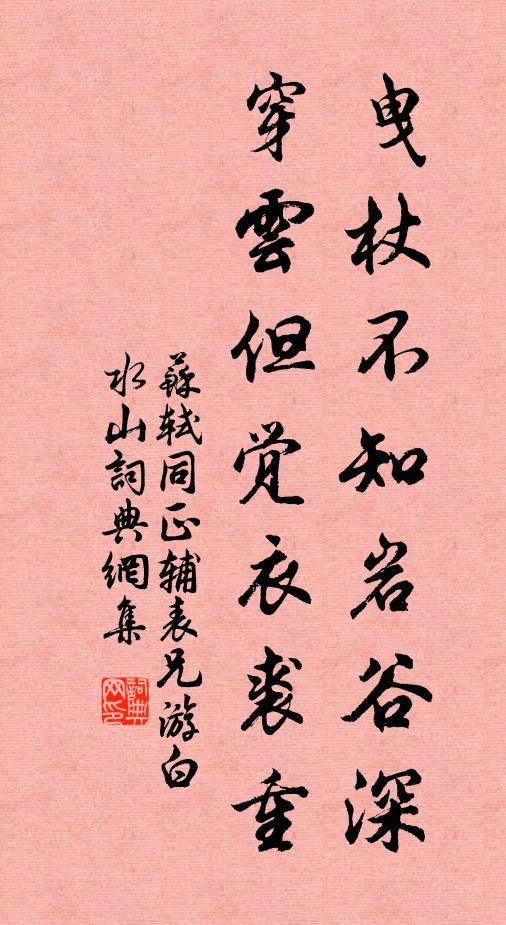 曳杖不知岩谷深
穿雲但觉衣裘重
蘇轼同正辅表兄游白
水山詞典網集
詞典
网印